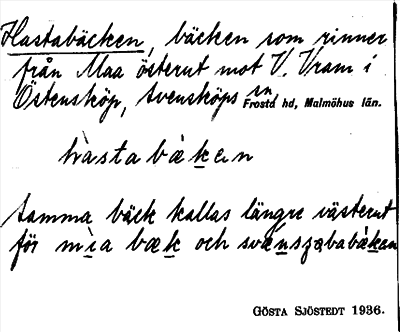 Hastabäcken, bäcken som rinner
från Maa österut mot V. Vram i
Östensköp, Svensköps sn,
Frosta hd, Malmöhus län.
hàstabæ̀ḵen
Samma bäck kallas längre västerut
för mi̱a bæḵ och
GÖSTA SJÖSTEDT 1936.